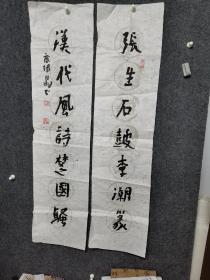 張生石鼓李潮篆
漢代風詩楚國騷